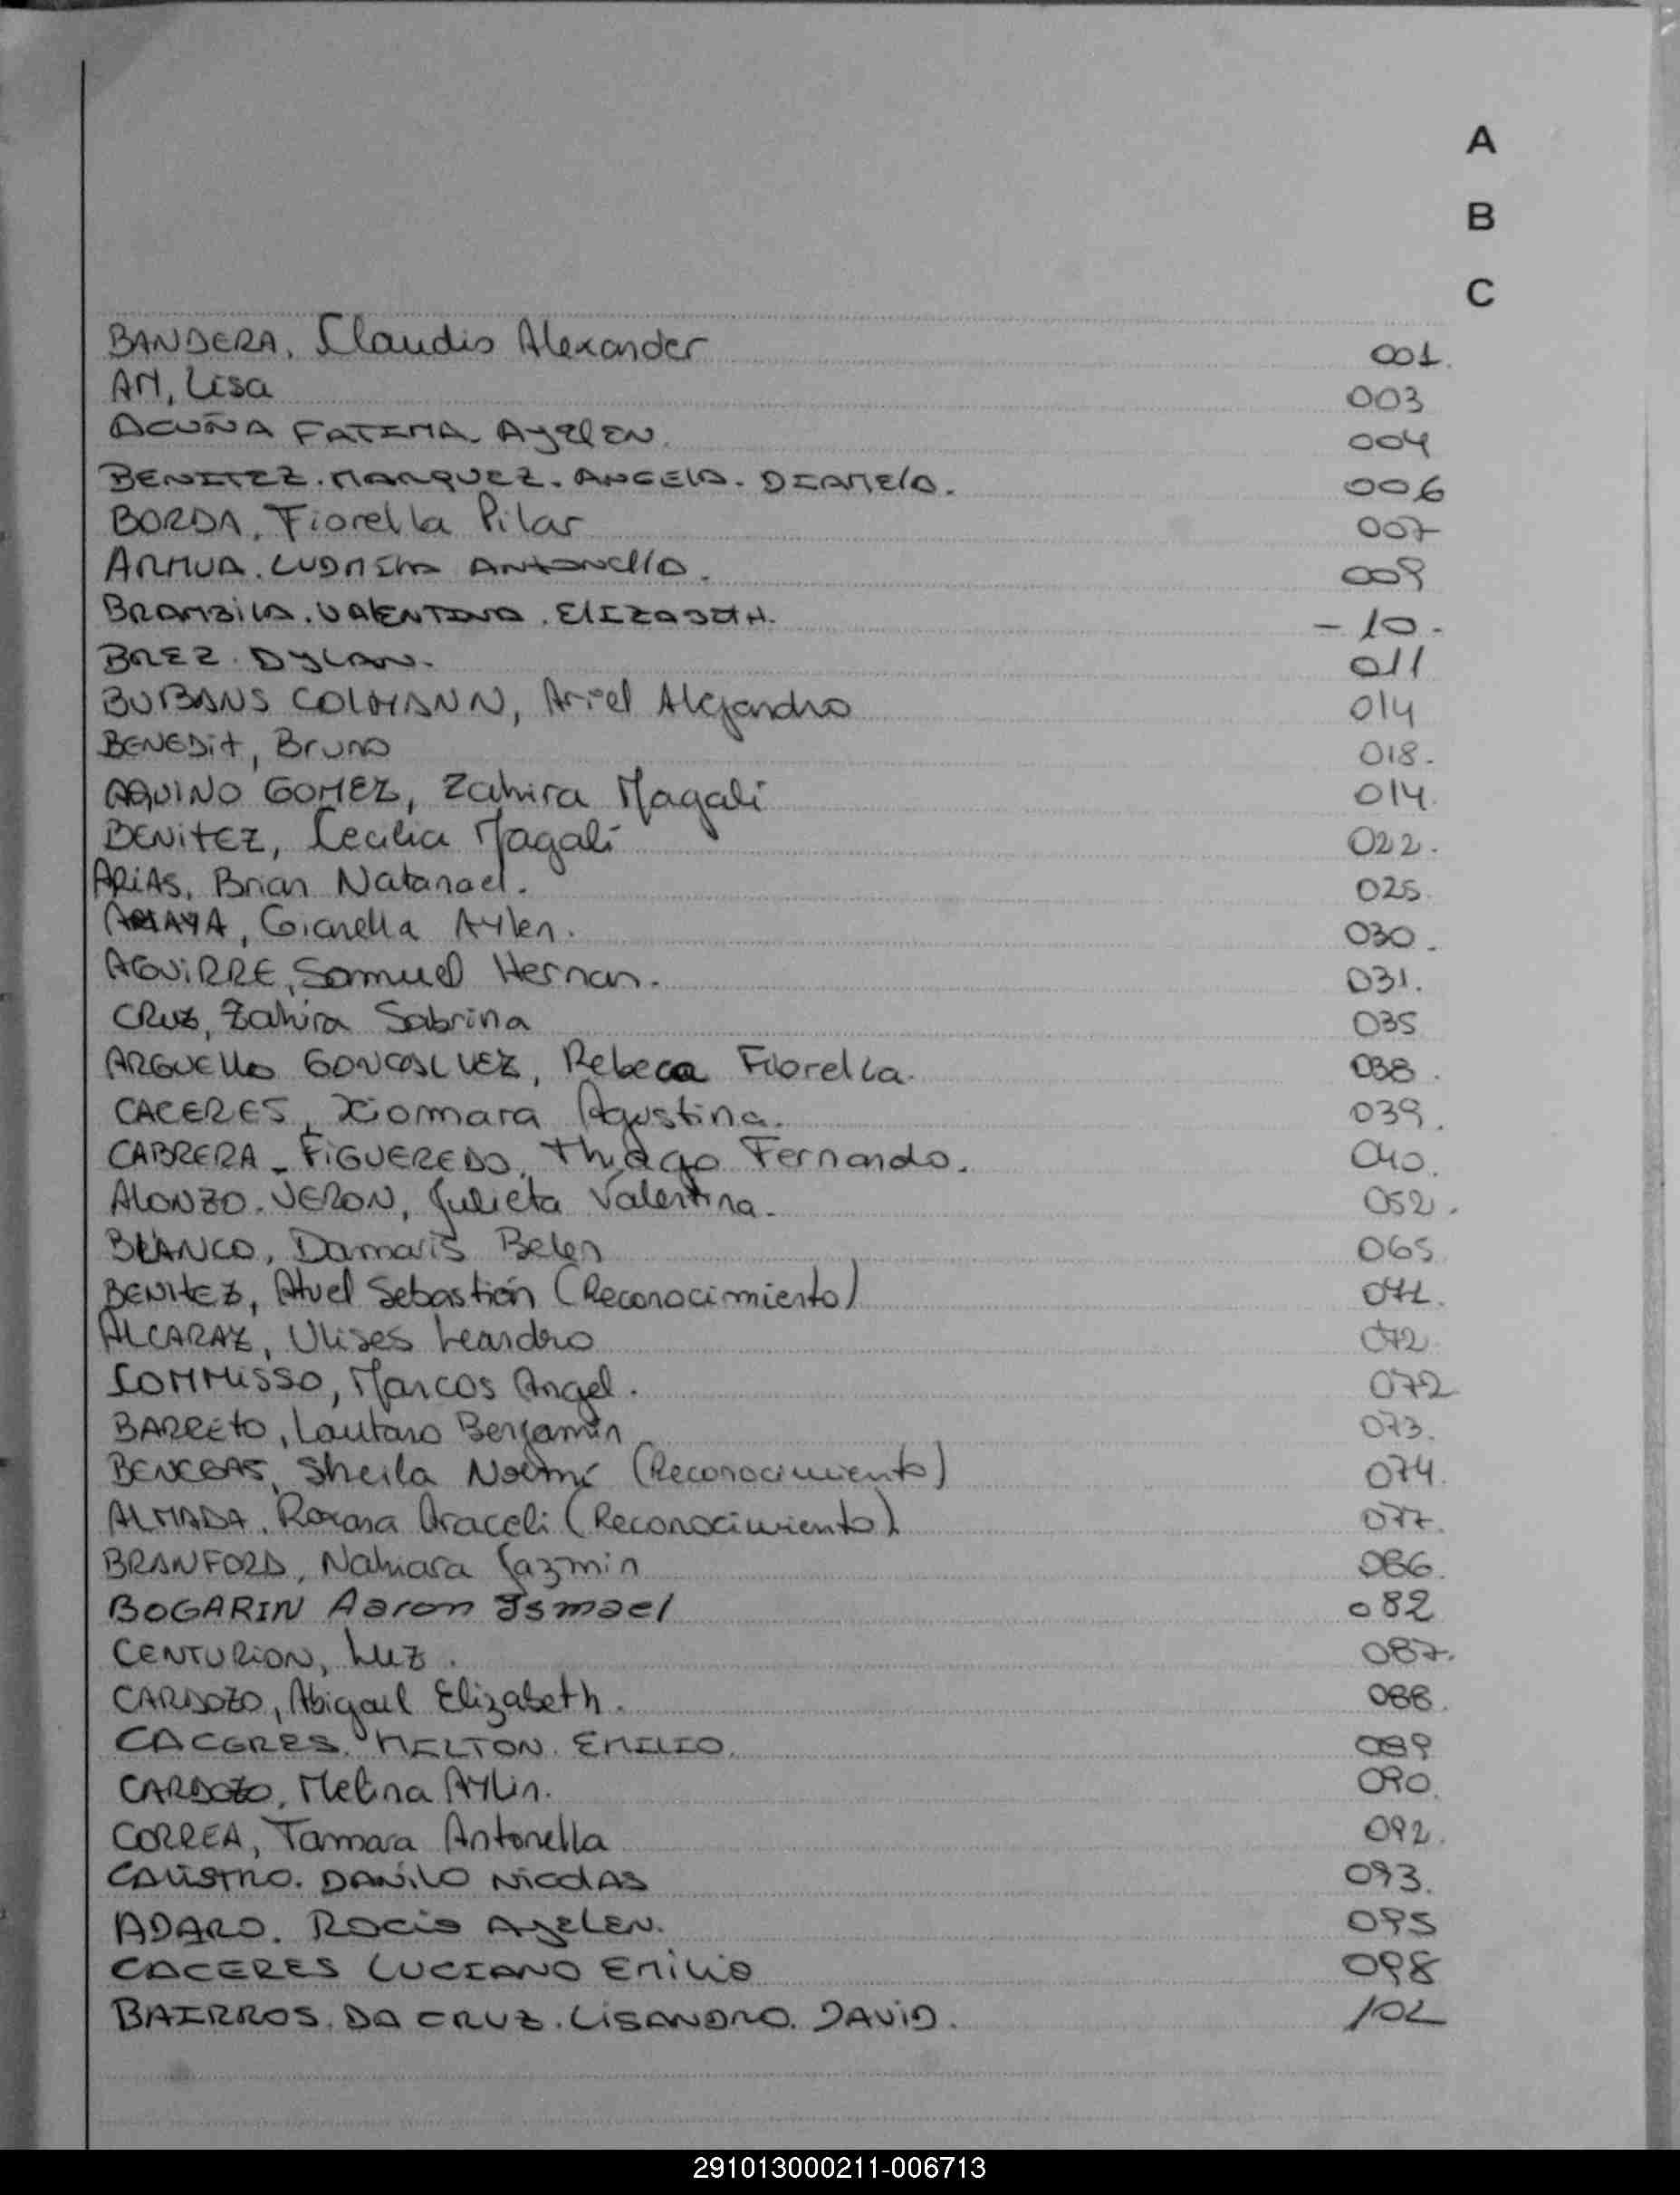 A
B
C
BANDERA, Claudio Alexander 001.
AM, Lisa 003
ACUÑA FATIMA. AyelEN. 004
BENITEZ. MARQUEZ. ANGELA. DIAMELA. 006
BORDA, Fiorella Pilar 007
ARMUA. LUDMILA ANTONELLA. 009
BRAMBILA. VALENTINA. ELIZABETH. - 10.
BREZ. DYLAN. 011
BUBANS COLMANN, Ariel Alejandro 014
BENEDIt, Bruno 018.
AQUINO GOMEZ, Zahira Magali 014.
BENITEZ, Cecilia Magali 022.
ARIAS, Brian Natanael. 025.
AMAYA, Gianella Aylen. 030.
AGUIRRE, Samuel Hernan. 031.
CRUZ, Zahira Sabrina 035
ARGUELLO GONCALVEZ, Rebeca Fiorella. 038.
CACERES, Xiomara Agustina. 039.
CABRERA - FIGUEREDO, Thiago Fernando. 040.
ALONZO. VERON, Julieta Valentina. 052.
BLANCO, Damaris Belen 065.
BENITEZ, Atuel Sebastián (Reconocimiento) 071.
ALCARAZ, Ulises Leandro 072.
COMMISSO, Marcos Angel. 072
BARRETO, Lautaro Benjamin 073.
BENEGAS, Sheila Noemí (Reconocimiento) 074.
ALMADA, Roxana Araceli (Reconocimiento) 077.
BRANFORD, Nahiara Jazmin 086.
BOGARIN Aaron Ismael 082
CENTURION, Luz. 087.
CARDOZO, Abigail Elizabeth. 088.
CACERES. MILTON. EMILIO. 089
CARDOZO, Melina Aylin. 090.
CORREA, Tamara Antonella 092.
CALISTRO. DANILO NICOLAS 093.
ADARO. ROCIO AYELEN. 095
CACERES LUCIANO EMILIO 098
BAIRROS. DA CRUZ. LISANDRO. DAVID. 102
291013000211-006713